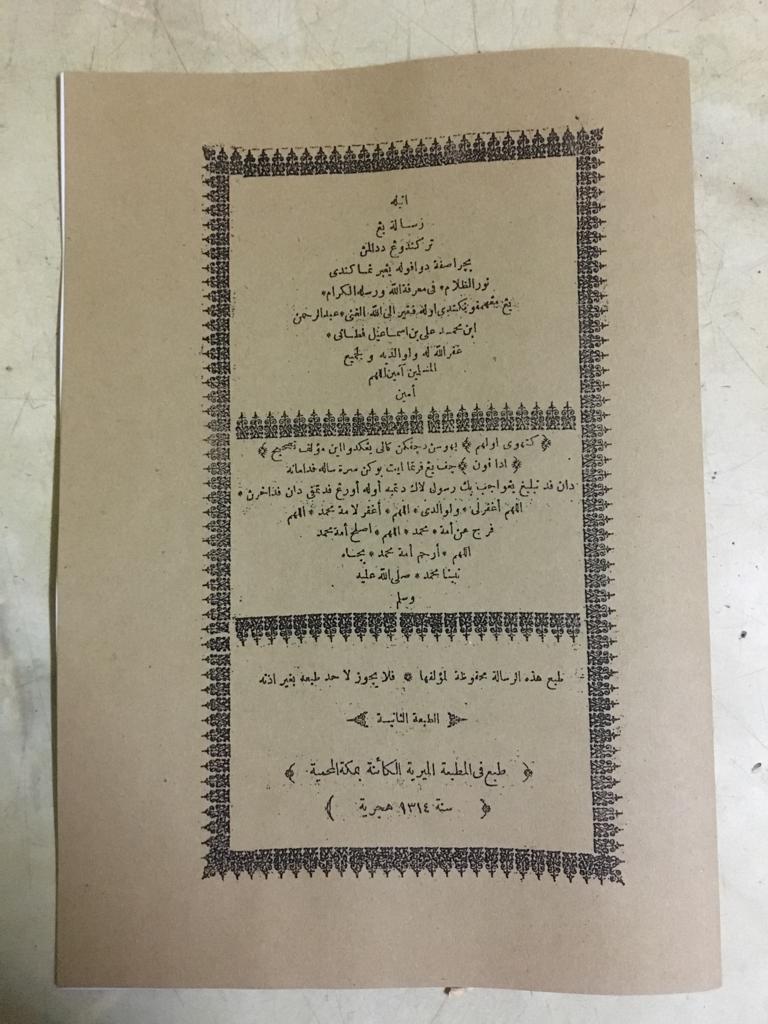 اتيله
رسالة يڠ
تركندوڠ ددالمڽ
بچر اصفة دوافوله يڠبرنما كندى
نور الظلام * فى معرفة الله ورسله الكرام *
اوله فقير الى الله الغنى * عبد الرحمن
ابن محمد على بن اسماعيل فطانى *
غفر الله له ولوالديه ولجميع
المسلمين آمين اللهم
آمين
﴿ كتهوى اولهم ﴾ بهوسڽ دچفكن كالى يڠكدوا اين مؤلف تصحيح ﴾
﴿ ادافون ﴾ چف يڠ فرتما ايت بوكن
دان فد تبليغ يڠواجب بݢ رسول
اللهم أغفرلى * ولوالدى * اللهم * أغفر لامة محمد * اللهم
فرج عن أمة * محمد * اللهم * اصلح أمة محمد
اللهم * أرحم أمة محمد * بجاه
نبينا محمد * صلى الله عليه
وسلم
طبع هذه الرسالة محفوظة لمؤلفها * فلا يجوز لاحد طبعه بغير اذنه
الطبعة الثانية
﴿ طبع فى المطبعة الميرية الكائنة بمكة المحمية ﴾
﴿ سنة ١٣١٤ هجرية ﴾